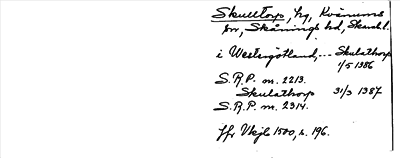 Skulltorp, hg, Kvänums
sn, Skånings hd, Skarab. l.
i Westergötland, -- Skulathorp
1/5 1386
S.R.P. nr. 2213.
Skulathorp 31/3 1387
S.R.P. nr. 2314.
Jfr Vkjb 1500, s. 196.